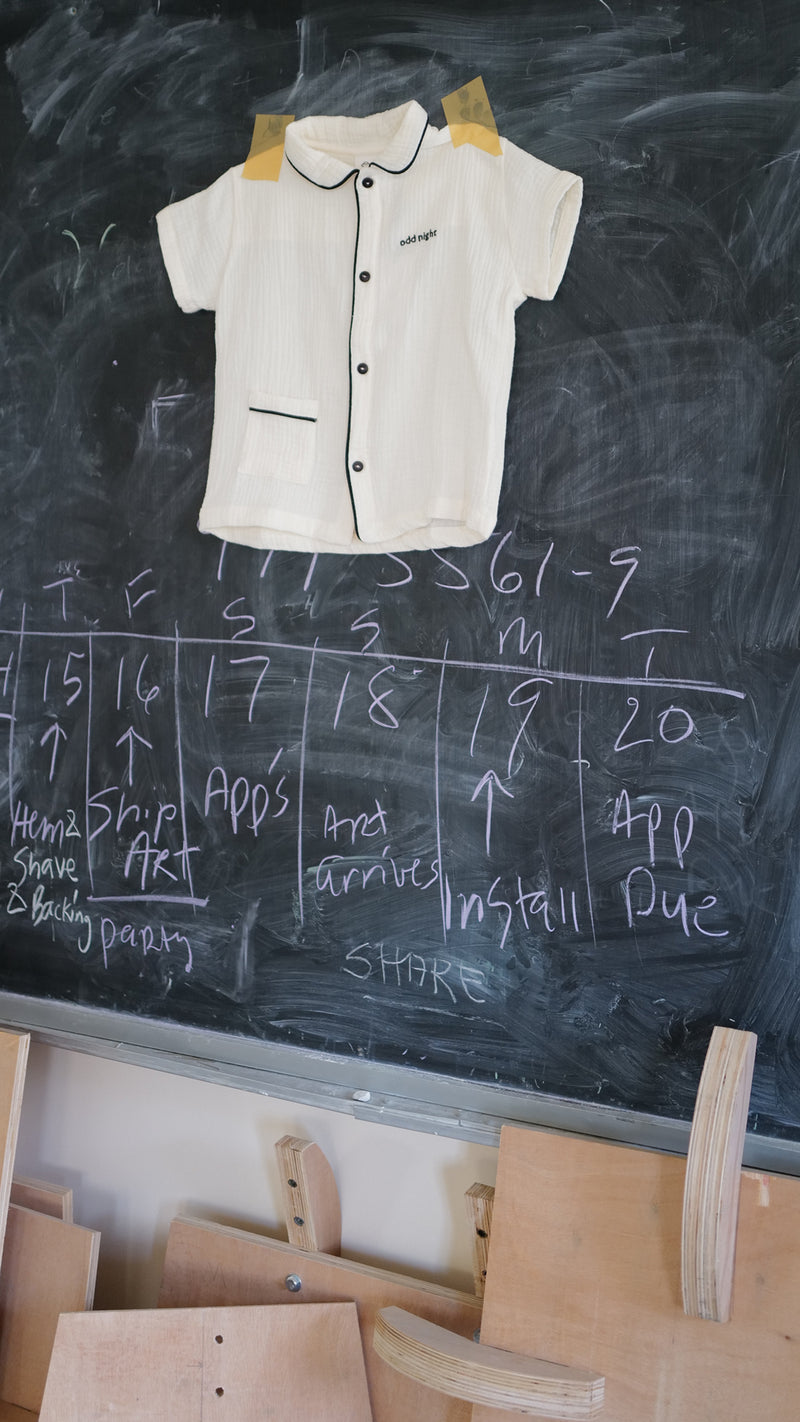 odd night
61-9
T F S S M T
15 16 17 18 19 20
Hem &
Shave
& Backing
Ship
Art
party
App's
Art
arrives
Install
App
Due
SHARE